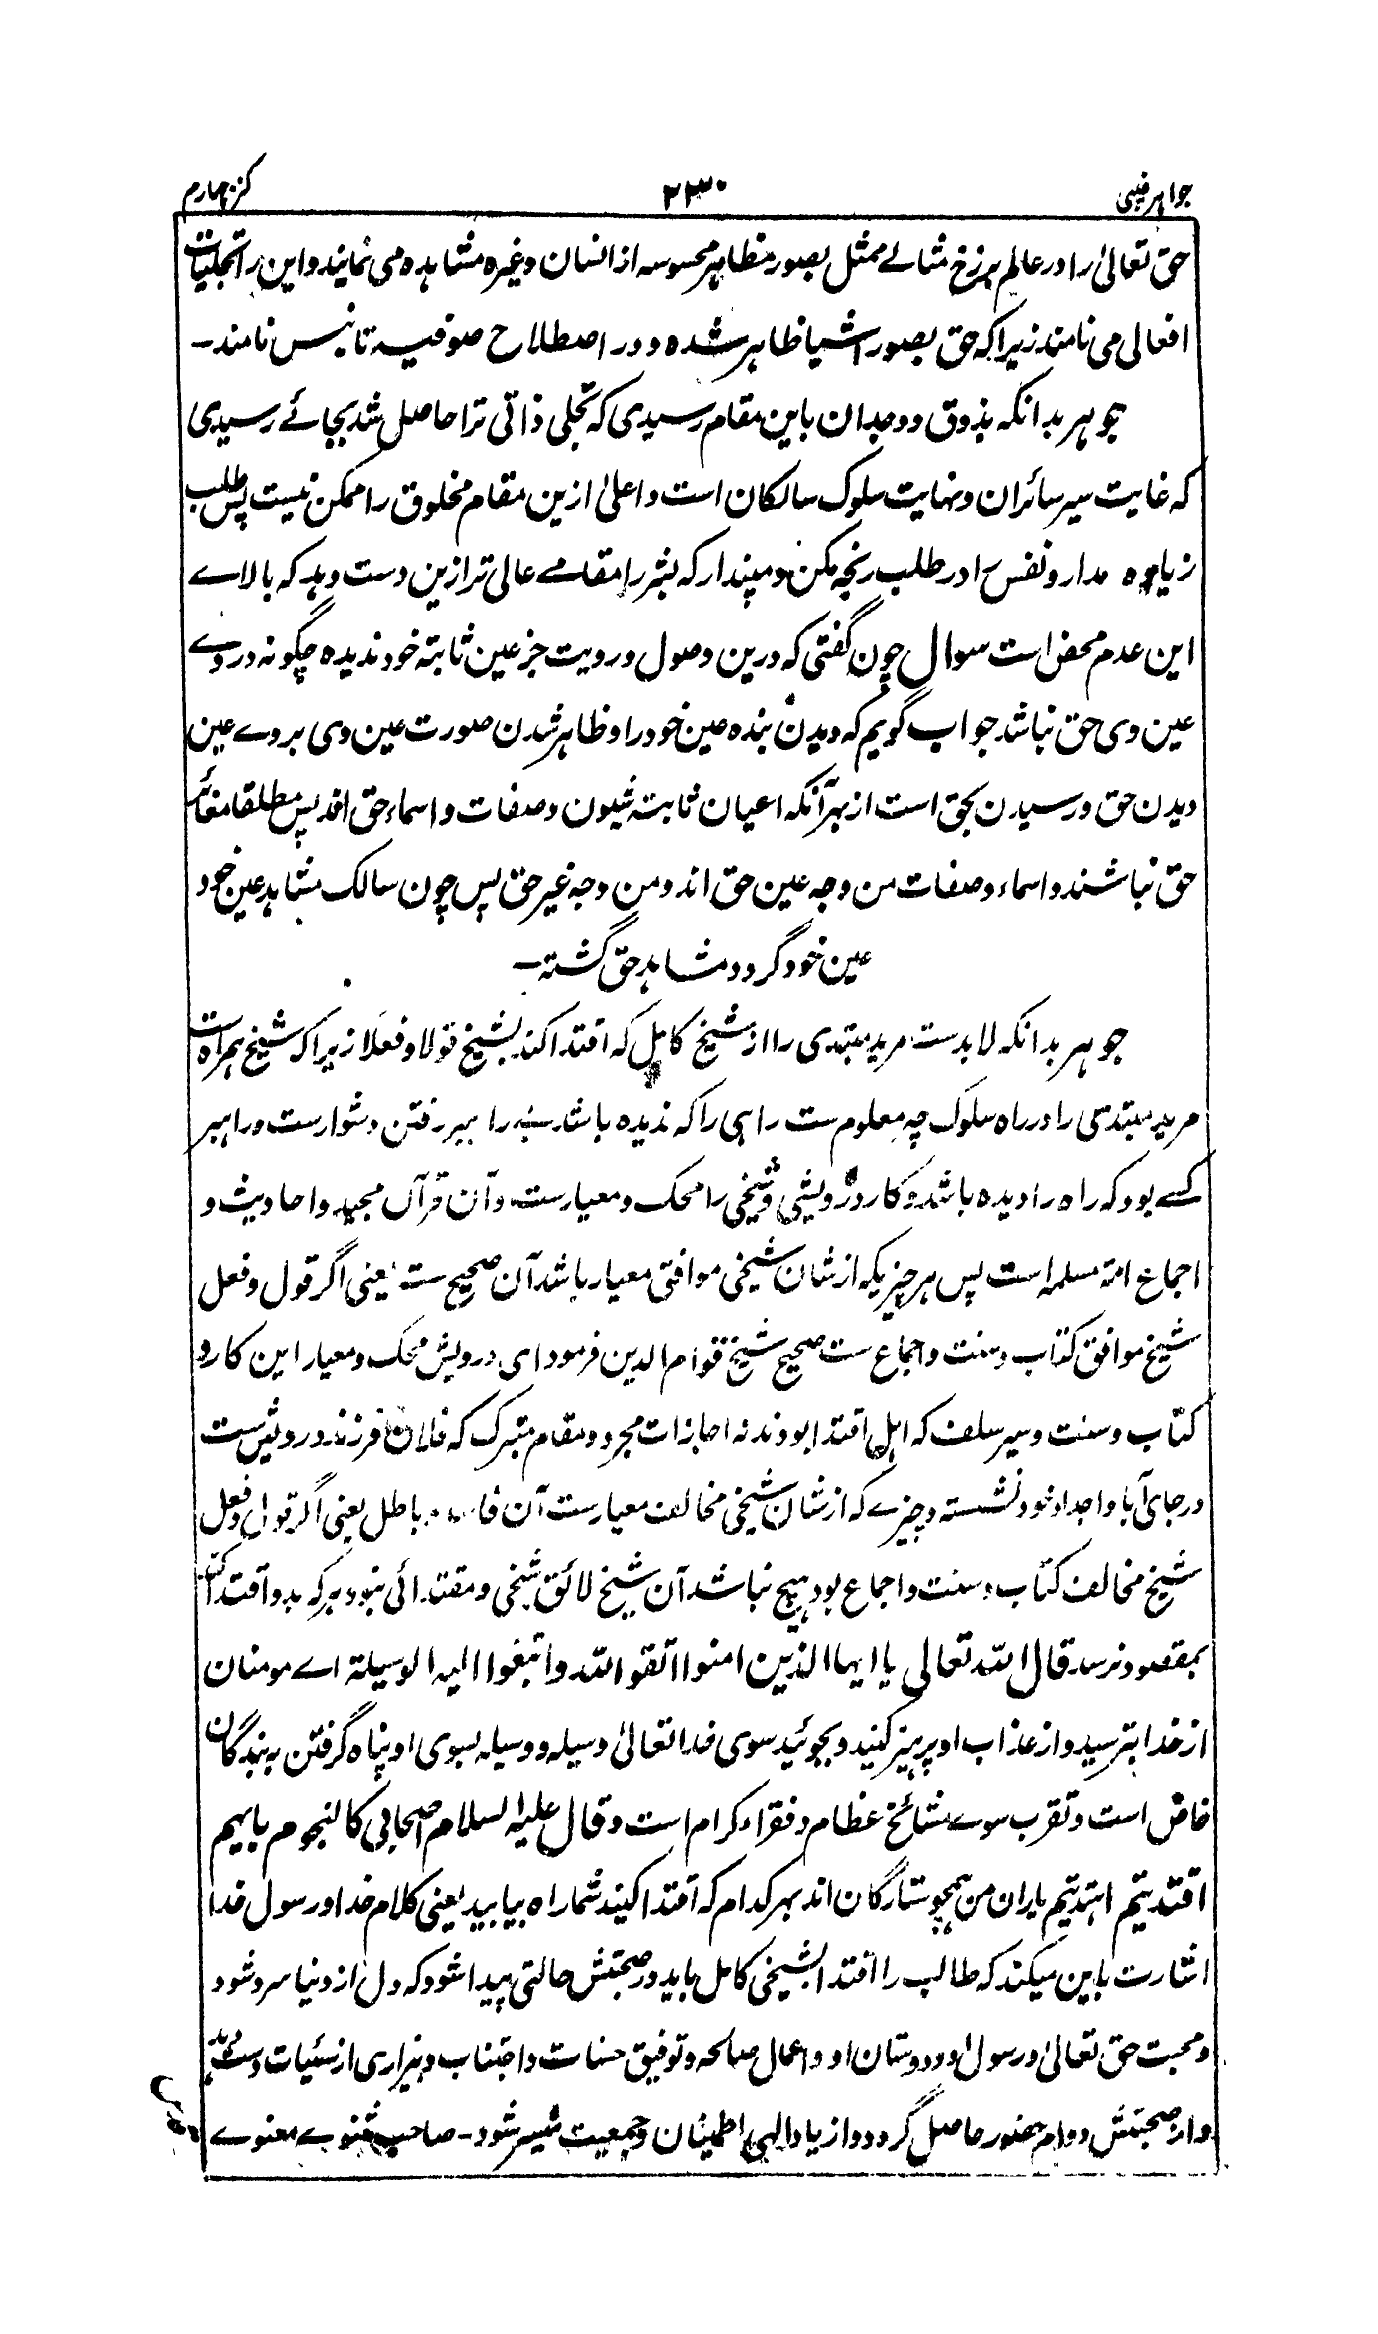 جواہر غیبی ۲۳۰ کنز چہارم
حق تعالیٰ را در عالم برزخ مثالے ممثل بصور مظاہر محسوسہ از انسان و غیرہ مشاہدہ می نمایند و این را تجلیات
افعالی می نامند زیرا کہ حق بصور اشیا ظاہر شدہ و در اصطلاح صوفیہ تانیس نامند۔
جوہر بدانکہ بذوق و وجدان باین مقام رسیدی کہ تجلی ذاتی ترا حاصل شد بجائے رسیدی
کہ غایت سیر سائران و نہایت سلوک سالکان است و اعلیٰ ازین مقام مخلوق را ممکن نیست پس طلب
زیادہ مدار و نفس را در طلب رنجہ مکن و مپندار کہ بشر را مقامے عالی تر ازین دست دہد کہ بالاے
این عدم محض است سوال چون گفتی کہ درین وصول و رویت جز عین ثابتہ خود ندیدہ چگونہ در وے
عین وی حق نباشد جواب گویم کہ دیدن بندہ عین خود را و ظاہر شدن صورت عین وی بروے عین
دیدن حق و رسیدن بحق است از بہر آنکہ اعیان ثابتہ شیون و صفات و اسماء حق اند پس مطلقا مغائر
حق نباشند و اسماء و صفات من وجہ عین حق اند و من وجہ غیر حق پس چون سالک مشاہد عین خود
عین خود گردد مشاہد حق گشتہ۔
جوہر بدانکہ لا بدست مرید مبتدی را از شیخ کامل کہ اقتدا کند بشیخ قولا و فعلا زیرا کہ شیخ ہمراہست
مرید مبتدی را در راہ سلوک چہ معلوم ست راہی را کہ ندیدہ باشد بے راہبر رفتن دشوارست و راہبر
کسے بود کہ راہ را دیدہ باشد و کار درویشی و شیخی را محک و معیارست و آن قرآن مجید و احادیث و
اجماع امۃ مسلمہ است پس ہر چیزیکہ از شان شیخی موافق معیار باشد آن صحیح ست یعنی اگر قول و فعل
شیخ موافق کتاب و سنت و اجماع ست صحیح شیخ قوام الدین فرمود ای درویش محک و معیار این کار و
کتاب و سنت و سیر سلف کہ اہل اقتدا بودند نہ اجازات مجرد و مقام متبرک کہ فلان فرزند درویش ست
در جای آبا و اجداد خود نشستہ و چیزے کہ از شان شیخی مخالف معیارست آن باطل یعنی اگر قول و فعل
شیخ مخالف کتاب و سنت و اجماع بود ہیچ نباشد آن شیخ لائق شیخی و مقتدائی نبود ہر کہ بدو اقتدا کند
بمقصود نرسد قال اللہ تعالی یا ایہا الذین امنوا اتقوا اللہ و ابتغوا الیہ الوسیلۃ اے مومنان
از خدا بترسید و از عذاب او پرہیز کنید و بجوئید سوی خدا تعالیٰ وسیلہ و وسیلہ بسوی او پناہ گرفتن بہ بندگان
خاص است و تقرب سوے مشائخ عظام و فقراء کرام است و قال علیہ السلام اصحابی کالنجوم بایہم
اقتدیتم اہتدیتم یاران من ہمچو ستارگان اند بہر کدام کہ اقتدا کنید شما راہ بیابید یعنی کلام خدا و رسول خدا
اشارت باین میکند کہ طالب را اقتدا بشیخی کامل باید در صحبتش حالتی پیدا شود کہ دل از دنیا سرد شود
و محبت حق تعالیٰ و رسول او و دوستان او و اعمال صالحہ و توفیق حسنات و اجتناب و بیزاری از سئیات دست دہد
و از صحبتش دوام حضور حاصل گردد و از یاد الٰہی اطمینان و جمعیت میسر شود۔ صاحب مثنوے معنوے